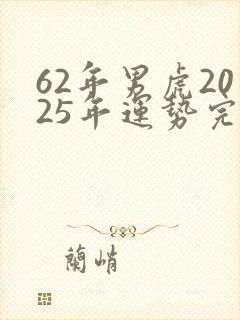 62年男虎20
25年運勢完
蘭峭